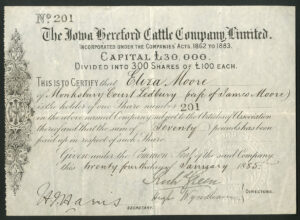 No 201
The Iowa Hereford Cattle Company, Limited.
INCORPORATED UNDER THE COMPANIES ACTS, 1862 TO 1883.
CAPITAL £30,000.
DIVIDED INTO 300 SHARES OF £100 EACH.
THIS IS TO CERTIFY that Eliza Moore
of Monksbury Court Ledbury (wife of James Moore)
is the holder of one Share numbered 201
in the above named Company subject to the Articles of Association
thereof and that the sum of Seventy pounds has been
paid up in respect of such Share
Given under the Common Seal of the said Company
this twenty fourth day of January 1885.
DIRECTORS.
SECRETARY.